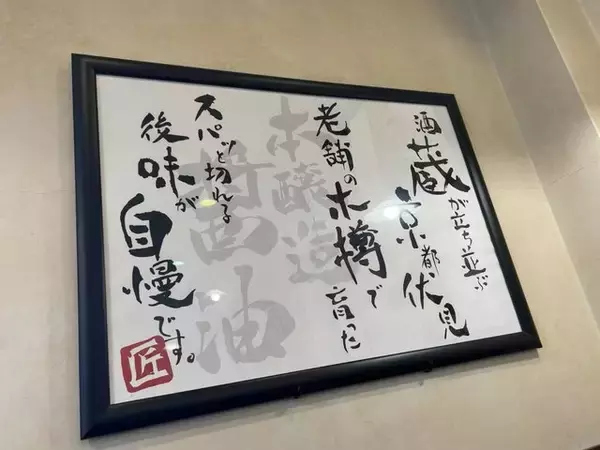 酒蔵が立ち並ぶ
京都伏見
老舗の木樽で
育った
スパッと切れる
後味が
自慢です。
本醸造
醤油
匠